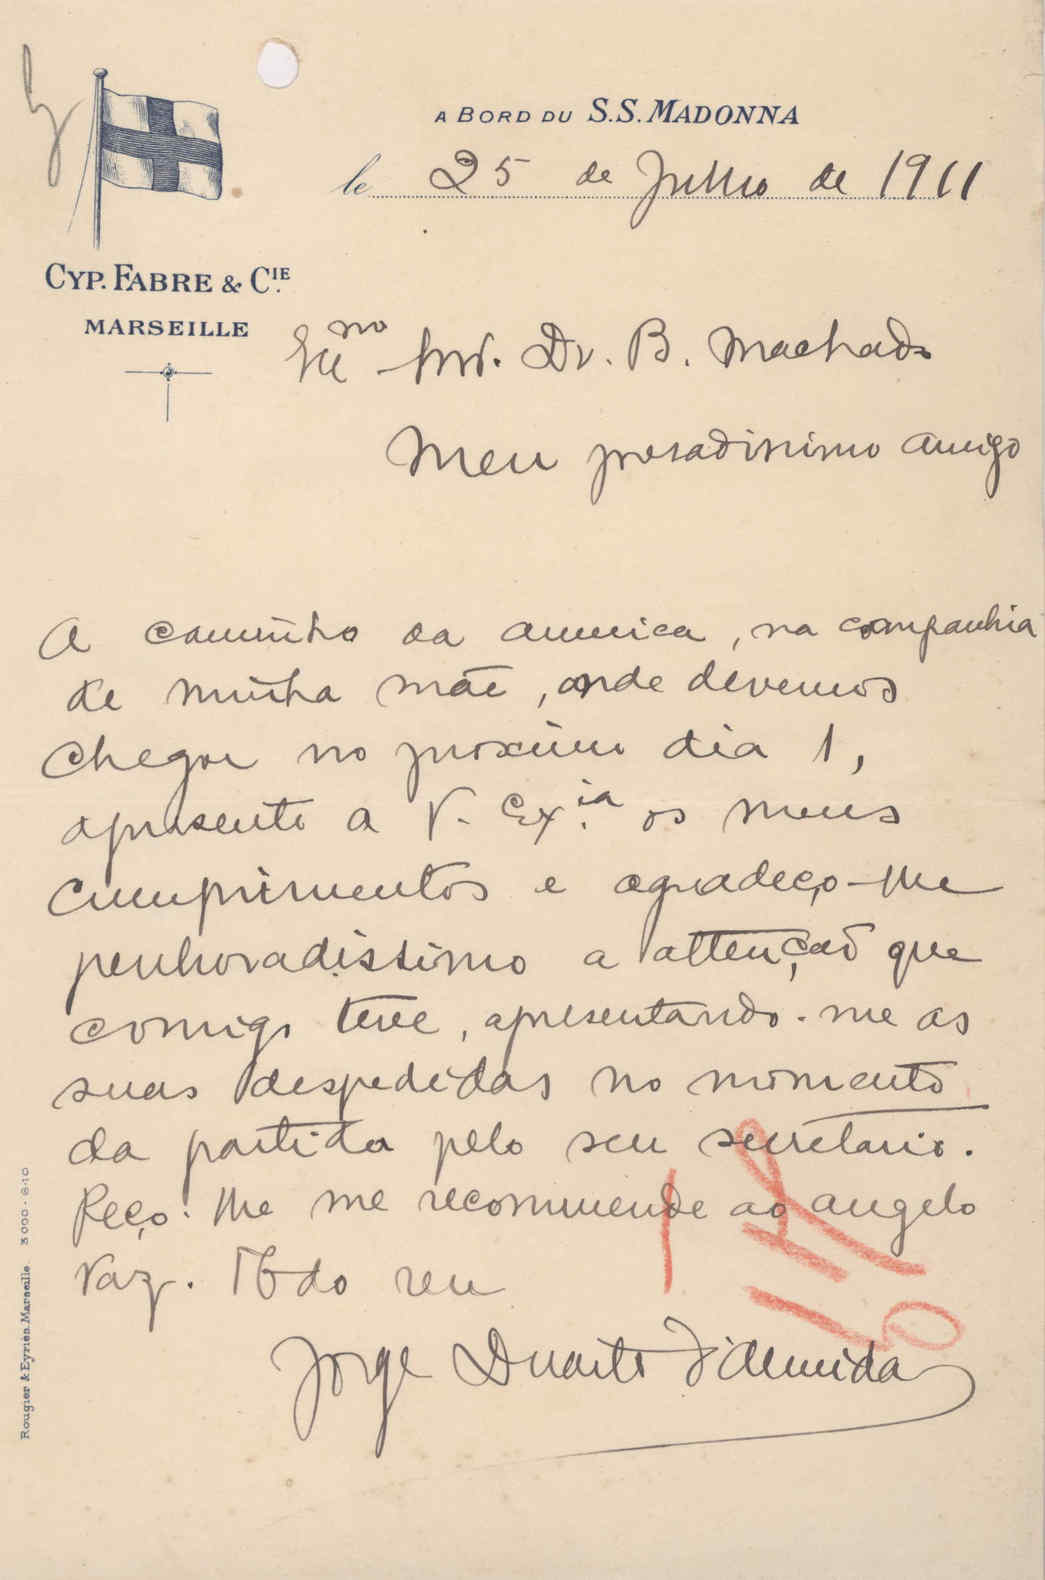 A BORD DU S.S. MADONNA
le 25 de Julho de 1911
CYP. FABRE & CIE.
MARSEILLE
Exmo Snr. Dr. B. Machado
Meu presadissimo amigo
A caminho da America, na companhia
de minha mãe, onde devemos
chegar no proximo dia 1,
apresento a V. Ex.ia os meus
cumprimentos e agradeço-lhe
penhoradissimo a attenção que
comigo teve, apresentando-me as
suas despedidas no momento
da partida pelo seu secretario.
Peço-lhe me recommende ao Angelo
Vaz. do seu
Jorge Duarte d'Almeida
Rougier & Eyriès. Marseille. 3000-6-10